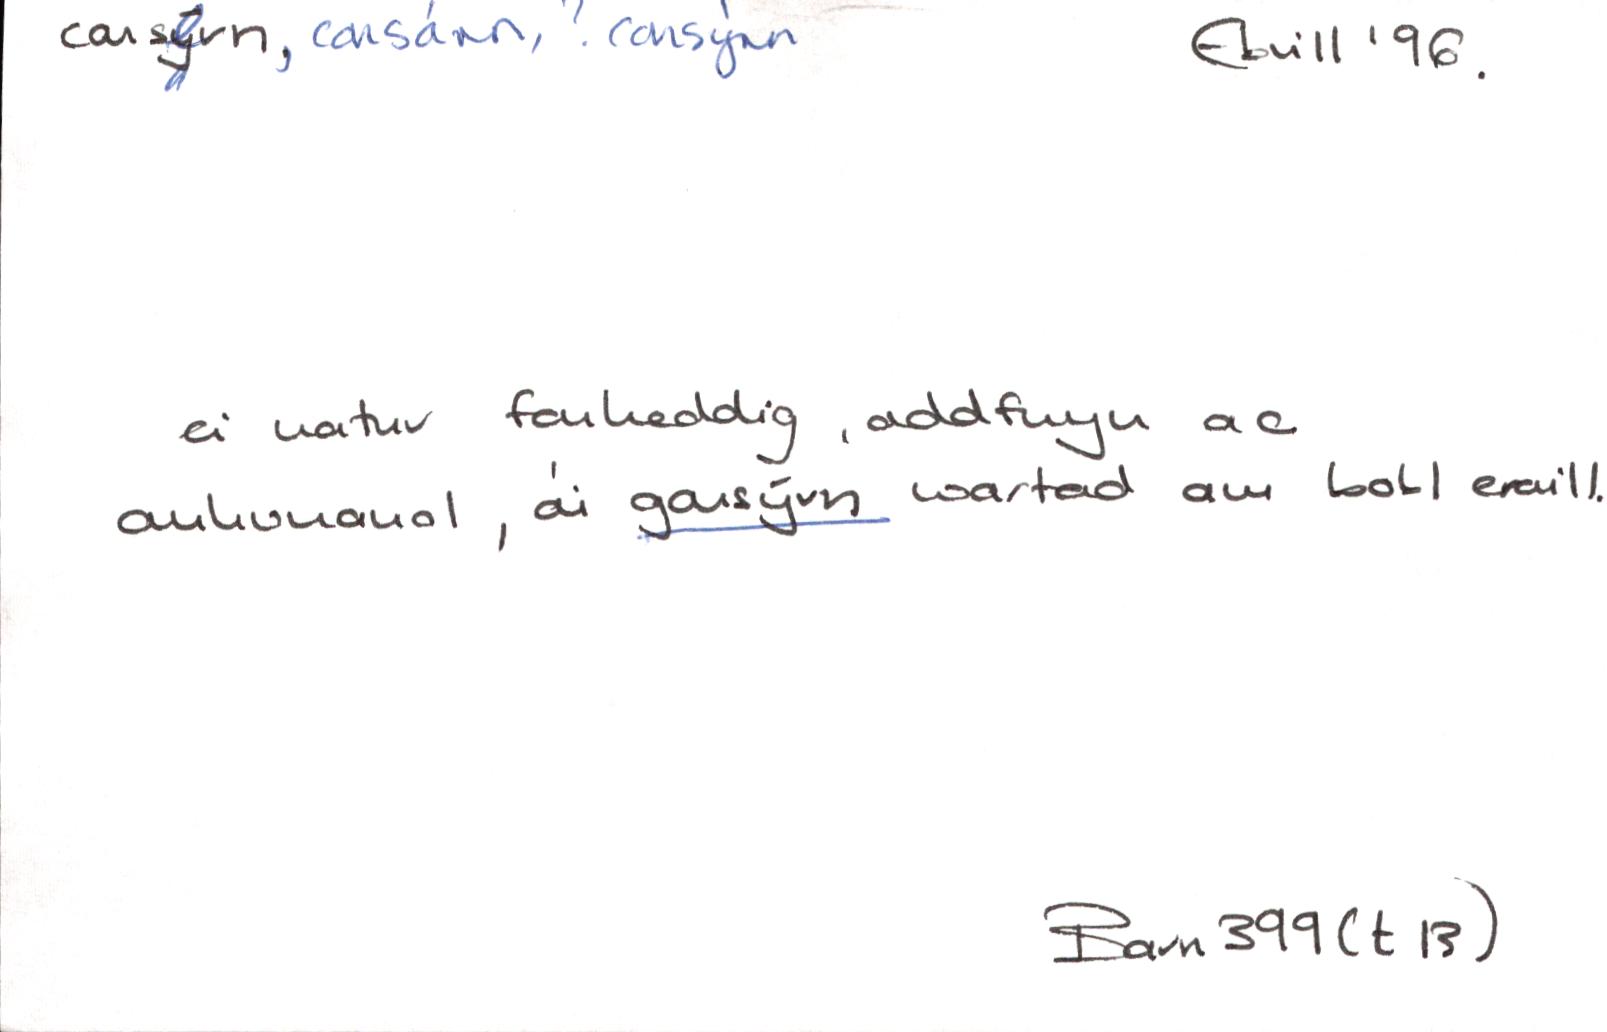 consýrn, consárn, ? consýrn Ebrill '96.
ei natur fonheddig, addfwyn ac
anhunanol, a'i gonsýrn wastad am bobl eraill.
Barn 399 (t 13)